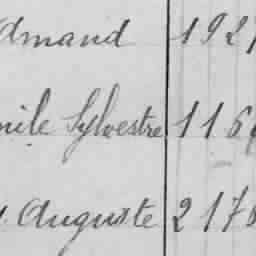 dmand 192
mile Sylvestre 116
Auguste 217